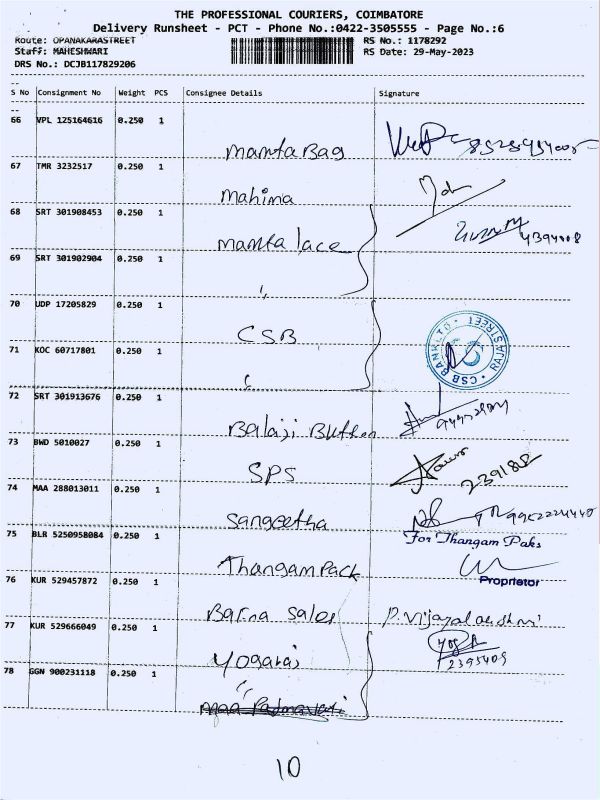 THE PROFESSIONAL COURIERS, COIMBATORE
Delivery Runsheet - PCT - Phone No.:0422-3505555 - Page No.:6
Route: OPANAKARASTREET RS No.: 1178292
Staff: MAHESHWARI RS Date: 29-May-2023
DRS No.: DCJB117829206
S No Consignment No Weight PCS Consignee Details Signature
66 VPL 125164616 0.250 1
Mamta Bag
67 TMR 3232517 0.250 1
Mahima
68 SRT 301908453 0.250 1
Mamta lace
4394008
69 SRT 301902904 0.250 1
"
70 UDP 17205829 0.250 1
CSB
CSB BANK LTD RAJA STREET
71 KOC 60717801 0.250 1
72 SRT 301913676 0.250 1
Balaji Button
73 BWD 5010027 0.250 1
SPS
239188
74 MAA 288013011 0.250 1
Sangeetha
75 BLR 5250958084 0.250 1
For Thangam Paks
Thangam Pack
Proprietor
76 KUR 529457872 0.250 1
Barna Sales P. Vijayalakshmi
77 KUR 529666049 0.250 1
Yogaraj
2395409
78 GGN 900231118 0.250 1
"
10